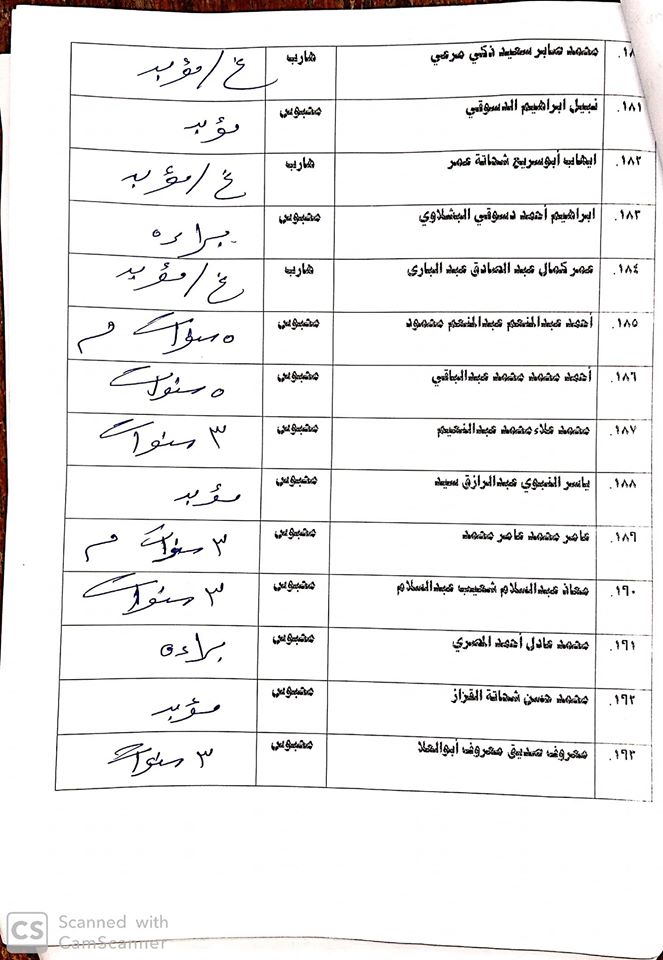 ١٨ محمد صابر سعيد ذكي مرعي هارب غ/مؤبد
١٨١. نبيل ابراهيم الدسوقي محبوس مؤبد
١٨٢. ايهاب أبوسريع شحاتة عمر هارب غ/مؤبد
١٨٣. ابراهيم أحمد دسوقي البشلاوي محبوس براءه
١٨٤. عمر كمال عبد الصادق عبد البارى هارب غ/مؤبد
١٨٥. أحمد عبدالمنعم عبدالمنعم محمود محبوس ٥ سنوات م
١٨٦. أحمد محمد محمد عبدالباقي محبوس ٥ سنوات
١٨٧. محمد علاء محمد عبدالنعيم محبوس ٣ سنوات
١٨٨. ياسر النبوي عبدالرازق سيد محبوس مؤبد
١٨٩. عامر محمد عامر محمد محبوس ٣ سنوات م
١٩٠. معاذ عبدالسلام شعيب عبدالسلام محبوس ٣ سنوات
١٩١. محمد عادل أحمد المصري محبوس براءه
١٩٢. محمد حسن شحاتة القزاز محبوس مؤبد
١٩٣. معروف صديق معروف أبوالعلا محبوس ٣ سنوات
CS Scanned with
CamScanner